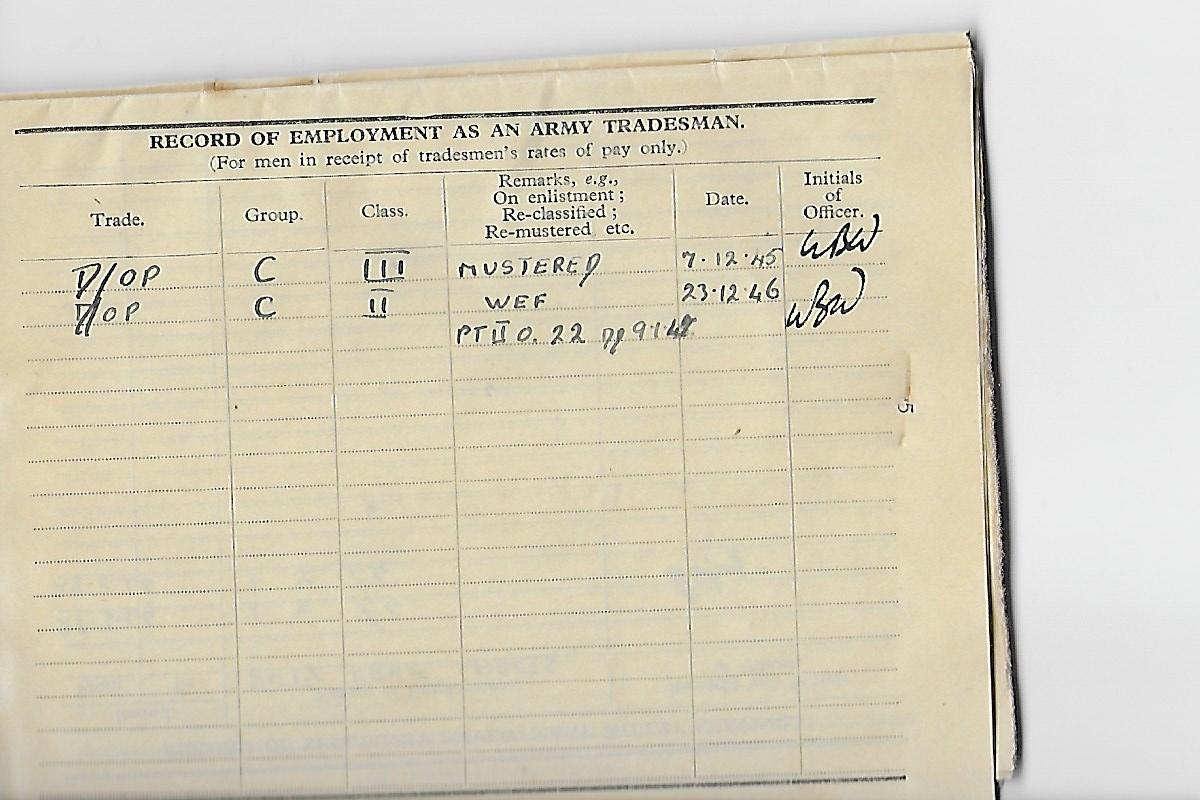 RECORD OF EMPLOYMENT AS AN ARMY TRADESMAN.
(For men in receipt of tradesmen's rates of pay only.)
Trade. Group. Class. Remarks, e.g., On enlistment; Re-classified; Re-mustered etc. Date. Initials of Officer.
D/OP C III MUSTERED 7.12.45 WBW
/OP C II WEF 23.12.46 WBW
PT II O. 22
5